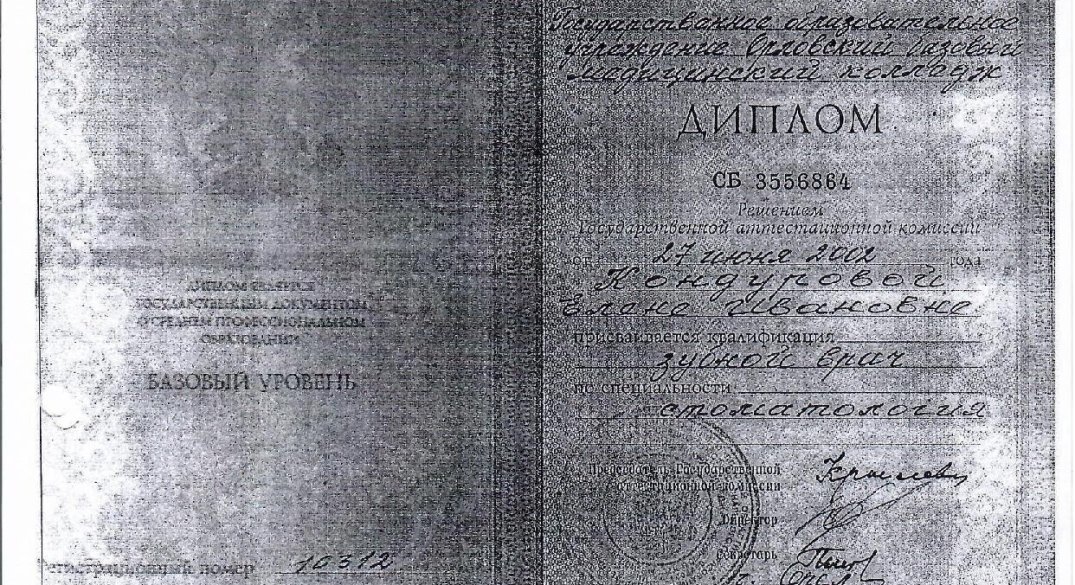 ДИПЛОМ ЯВЛЯЕТСЯ
ГОСУДАРСТВЕННЫМ ДОКУМЕНТОМ
О СРЕДНЕМ ПРОФЕССИОНАЛЬНОМ
ОБРАЗОВАНИИ
БАЗОВЫЙ УРОВЕНЬ
Регистрационный номер 10312
Государственное образовательное
учреждение Орловский базовый
медицинский колледж
ДИПЛОМ
СБ 3556864
Решением
Государственной аттестационной комиссии
от 27 июня 2002 года
Кондуровой
Елене Ивановне
присваивается квалификация
зубной врач
по специальности
стоматология
Председатель Государственной
аттестационной комиссии
Директор
Секретарь